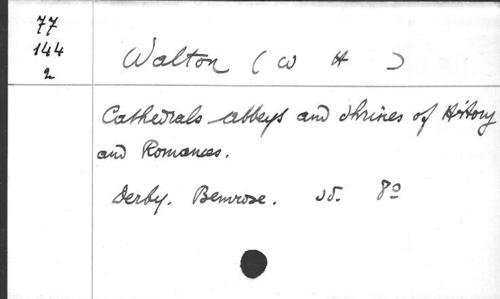 77
144
2
Walton ( W H )
Cathedrals abbeys and shrines of History
and Romances.
Derby. Bemrose. sd. 8º